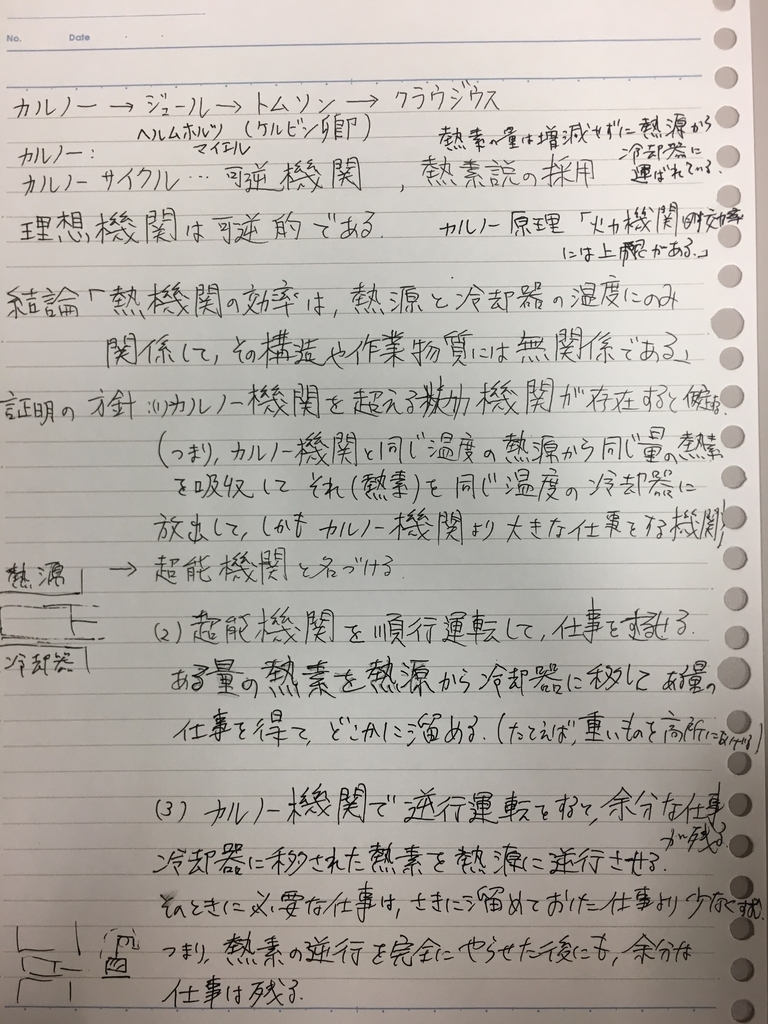 No. Date
カルノー → ジュール → トムソン → クラウジウス
ヘルムホルツ (ケルビン卿)
マイエル
熱素の量は増減せずに熱源から
冷却器に
運ばれている。
カルノー:
カルノーサイクル… 可逆機関 , 熱素説の採用
理想機関は可逆的である. カルノー原理「火力機関の効率
には上限がある。」
結論「熱機関の効率は, 熱源と冷却器の温度にのみ
関係して, その構造や作業物質には無関係である」
証明の方針:(1)カルノー機関を超える 機関が存在すると
(つまり, カルノー機関と同じ温度の熱源から同じ量の熱素
を吸収して それ(熱素)を同じ温度の冷却器に
放出して, しかもカルノー機関より大きな仕事をする機関)
→ 超能機関と名づける.
熱源
冷却器
(2) 超能機関を順行運転して, 仕事をさせる.
ある量の熱素を熱源から冷却器に移して ある量の
仕事を得て, どこかに溜める. (たとえば, 重いものを高所にあげる)
(3) カルノー機関で逆行運転をすると, 余分な仕事
が残る.
冷却器に移された熱素を熱源に逆行させる.
そのときに必要な仕事は, さきに溜めておいた仕事より少なくすむ.
つまり, 熱素の逆行を完全にやらせた後にも, 余分な
仕事は残る.